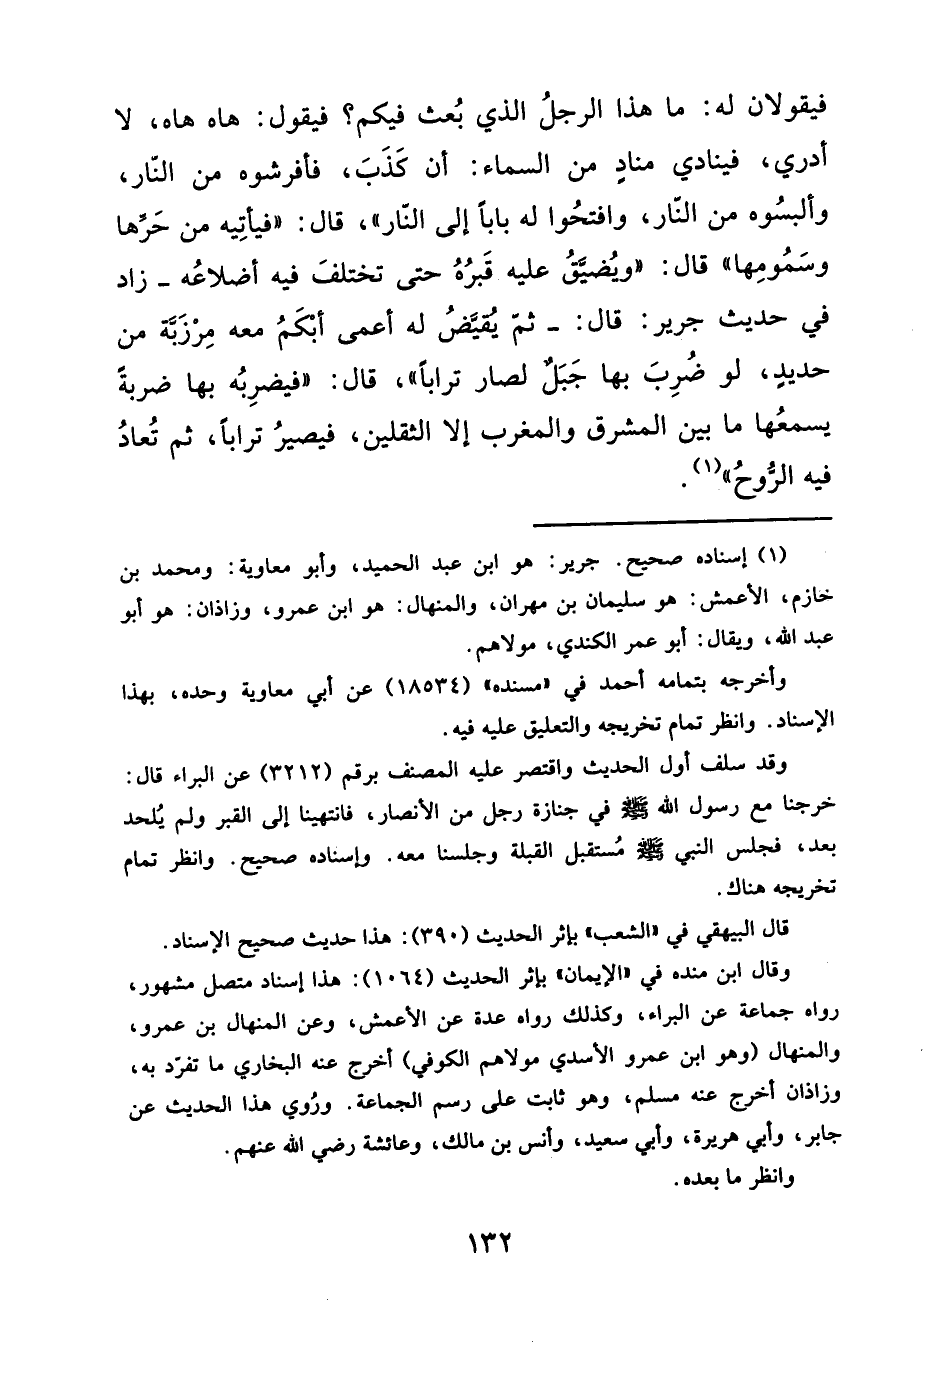 فيقولان له: ما هذا الرجلُ الذي بُعث فيكم؟ فيقول: هاه هاه، لا
أدري، فينادي منادٍ من السماء: أن كَذَبَ، فأفرشوه من النّار،
وألبسُوه من النّار، وافتحُوا له باباً إلى النّار»، قال: «فيأتِيه من حَرِّها
وسَمُومِها» قال: «ويُضيَّقُ عليه قَبرُهُ حتى تختلفَ فيه أضلاعُه ـ زاد
في حديث جرير: قال: ـ ثمّ يُقيَّضُ له أعمى أبْكَمُ معه مِرْزَبَّة من
حديدٍ، لو ضُرِبَ بها جَبَلٌ لصار تراباً»، قال: «فيضرِبُه بها ضربةً
يسمعُها ما بين المشرق والمغرب إلا الثقلين، فيصيرُ تراباً، ثم تُعادُ
فيه الرُّوحُ»(١).
(١) إسناده صحيح. جرير: هو ابن عبد الحميد، وأبو معاوية: ومحمد بن
خازم، الأعمش: هو سليمان بن مهران، والمنهال: هو ابن عمرو، وزاذان: هو أبو
عبد الله، ويقال: أبو عمر الكندي، مولاهم.
وأخرجه بتمامه أحمد في «مسنده» (١٨٥٣٤) عن أبي معاوية وحده، بهذا
الإسناد. وانظر تمام تخريجه والتعليق عليه فيه.
وقد سلف أول الحديث واقتصر عليه المصنف برقم (٣٢١٢) عن البراء قال:
خرجنا مع رسول الله ﷺ في جنازة رجل من الأنصار، فانتهينا إلى القبر ولم يُلحد
بعد، فجلس النبي ﷺ مُستقبل القبلة وجلسنا معه. وإسناده صحيح. وانظر تمام
تخريجه هناك.
قال البيهقي في «الشعب» بإثر الحديث (٣٩٠): هذا حديث صحيح الإسناد.
وقال ابن منده في «الإيمان» بإثر الحديث (١٠٦٤): هذا إسناد متصل مشهور،
رواه جماعة عن البراء، وكذلك رواه عدة عن الأعمش، وعن المنهال بن عمرو،
والمنهال (وهو ابن عمرو الأسدي مولاهم الكوفي) أخرج عنه البخاري ما تفرّد به،
وزاذان أخرج عنه مسلم، وهو ثابت على رسم الجماعة. ورُوي هذا الحديث عن
جابر، وأبي هريرة، وأبي سعيد، وأنس بن مالك، وعائشة رضي الله عنهم.
وانظر ما بعده.
١٣٢